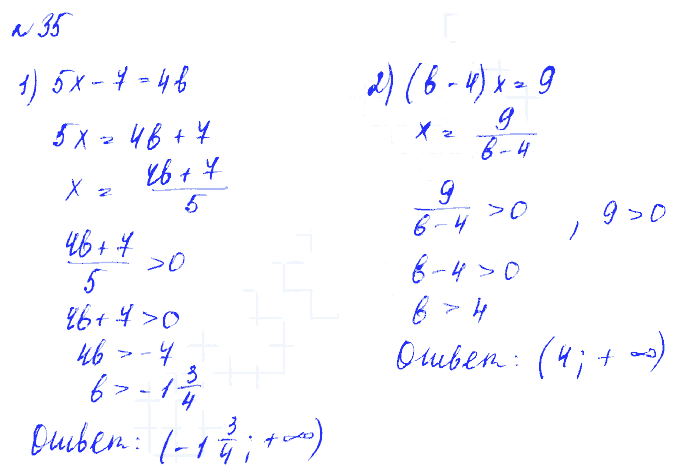 № 35
1) 5x - 7 = 4b
5x = 4b + 7
x = (4b + 7)/5
(4b + 7)/5 > 0
4b + 7 > 0
4b > -7
b > -1 3/4
Ответ: (-1 3/4; +∞)
2) (b - 4) x = 9
x = 9/(b - 4)
9/(b - 4) > 0, 9 > 0
b - 4 > 0
b > 4
Ответ: (4; +∞)